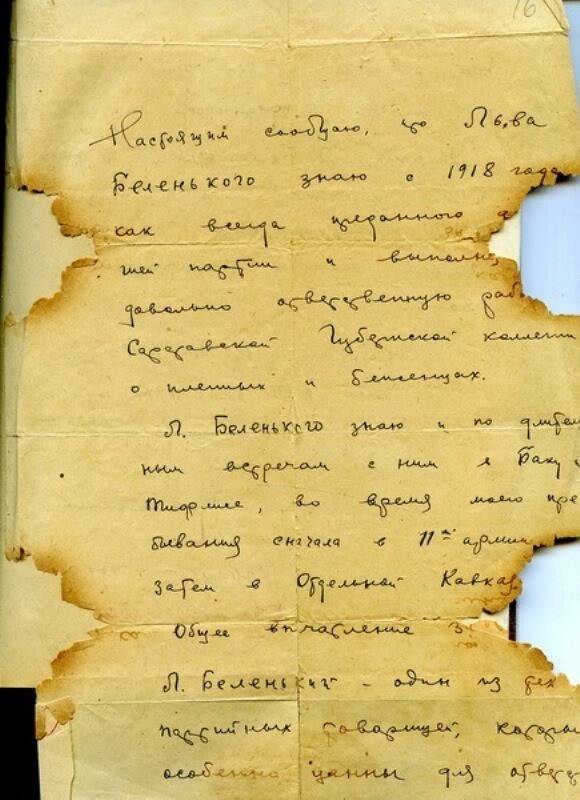 16
Настоящим сообщаю, что Льва
Беленького знаю с 1918 года
как всегда преданного
шей партии и выполня
довольно ответственную рабо
Саратовской Губернской коллегии
о пленных и беженцах.
Л. Беленького знаю и по длитель
ным встречам с ним в Баку и
Тифлисе, во время моего пре
бывания сначала в 11ой армии
затем в Отдельной Кавказ
Общее впечатление
Л. Беленький - один из тех
партийных товарищей, которы
особенно ценны для ответ